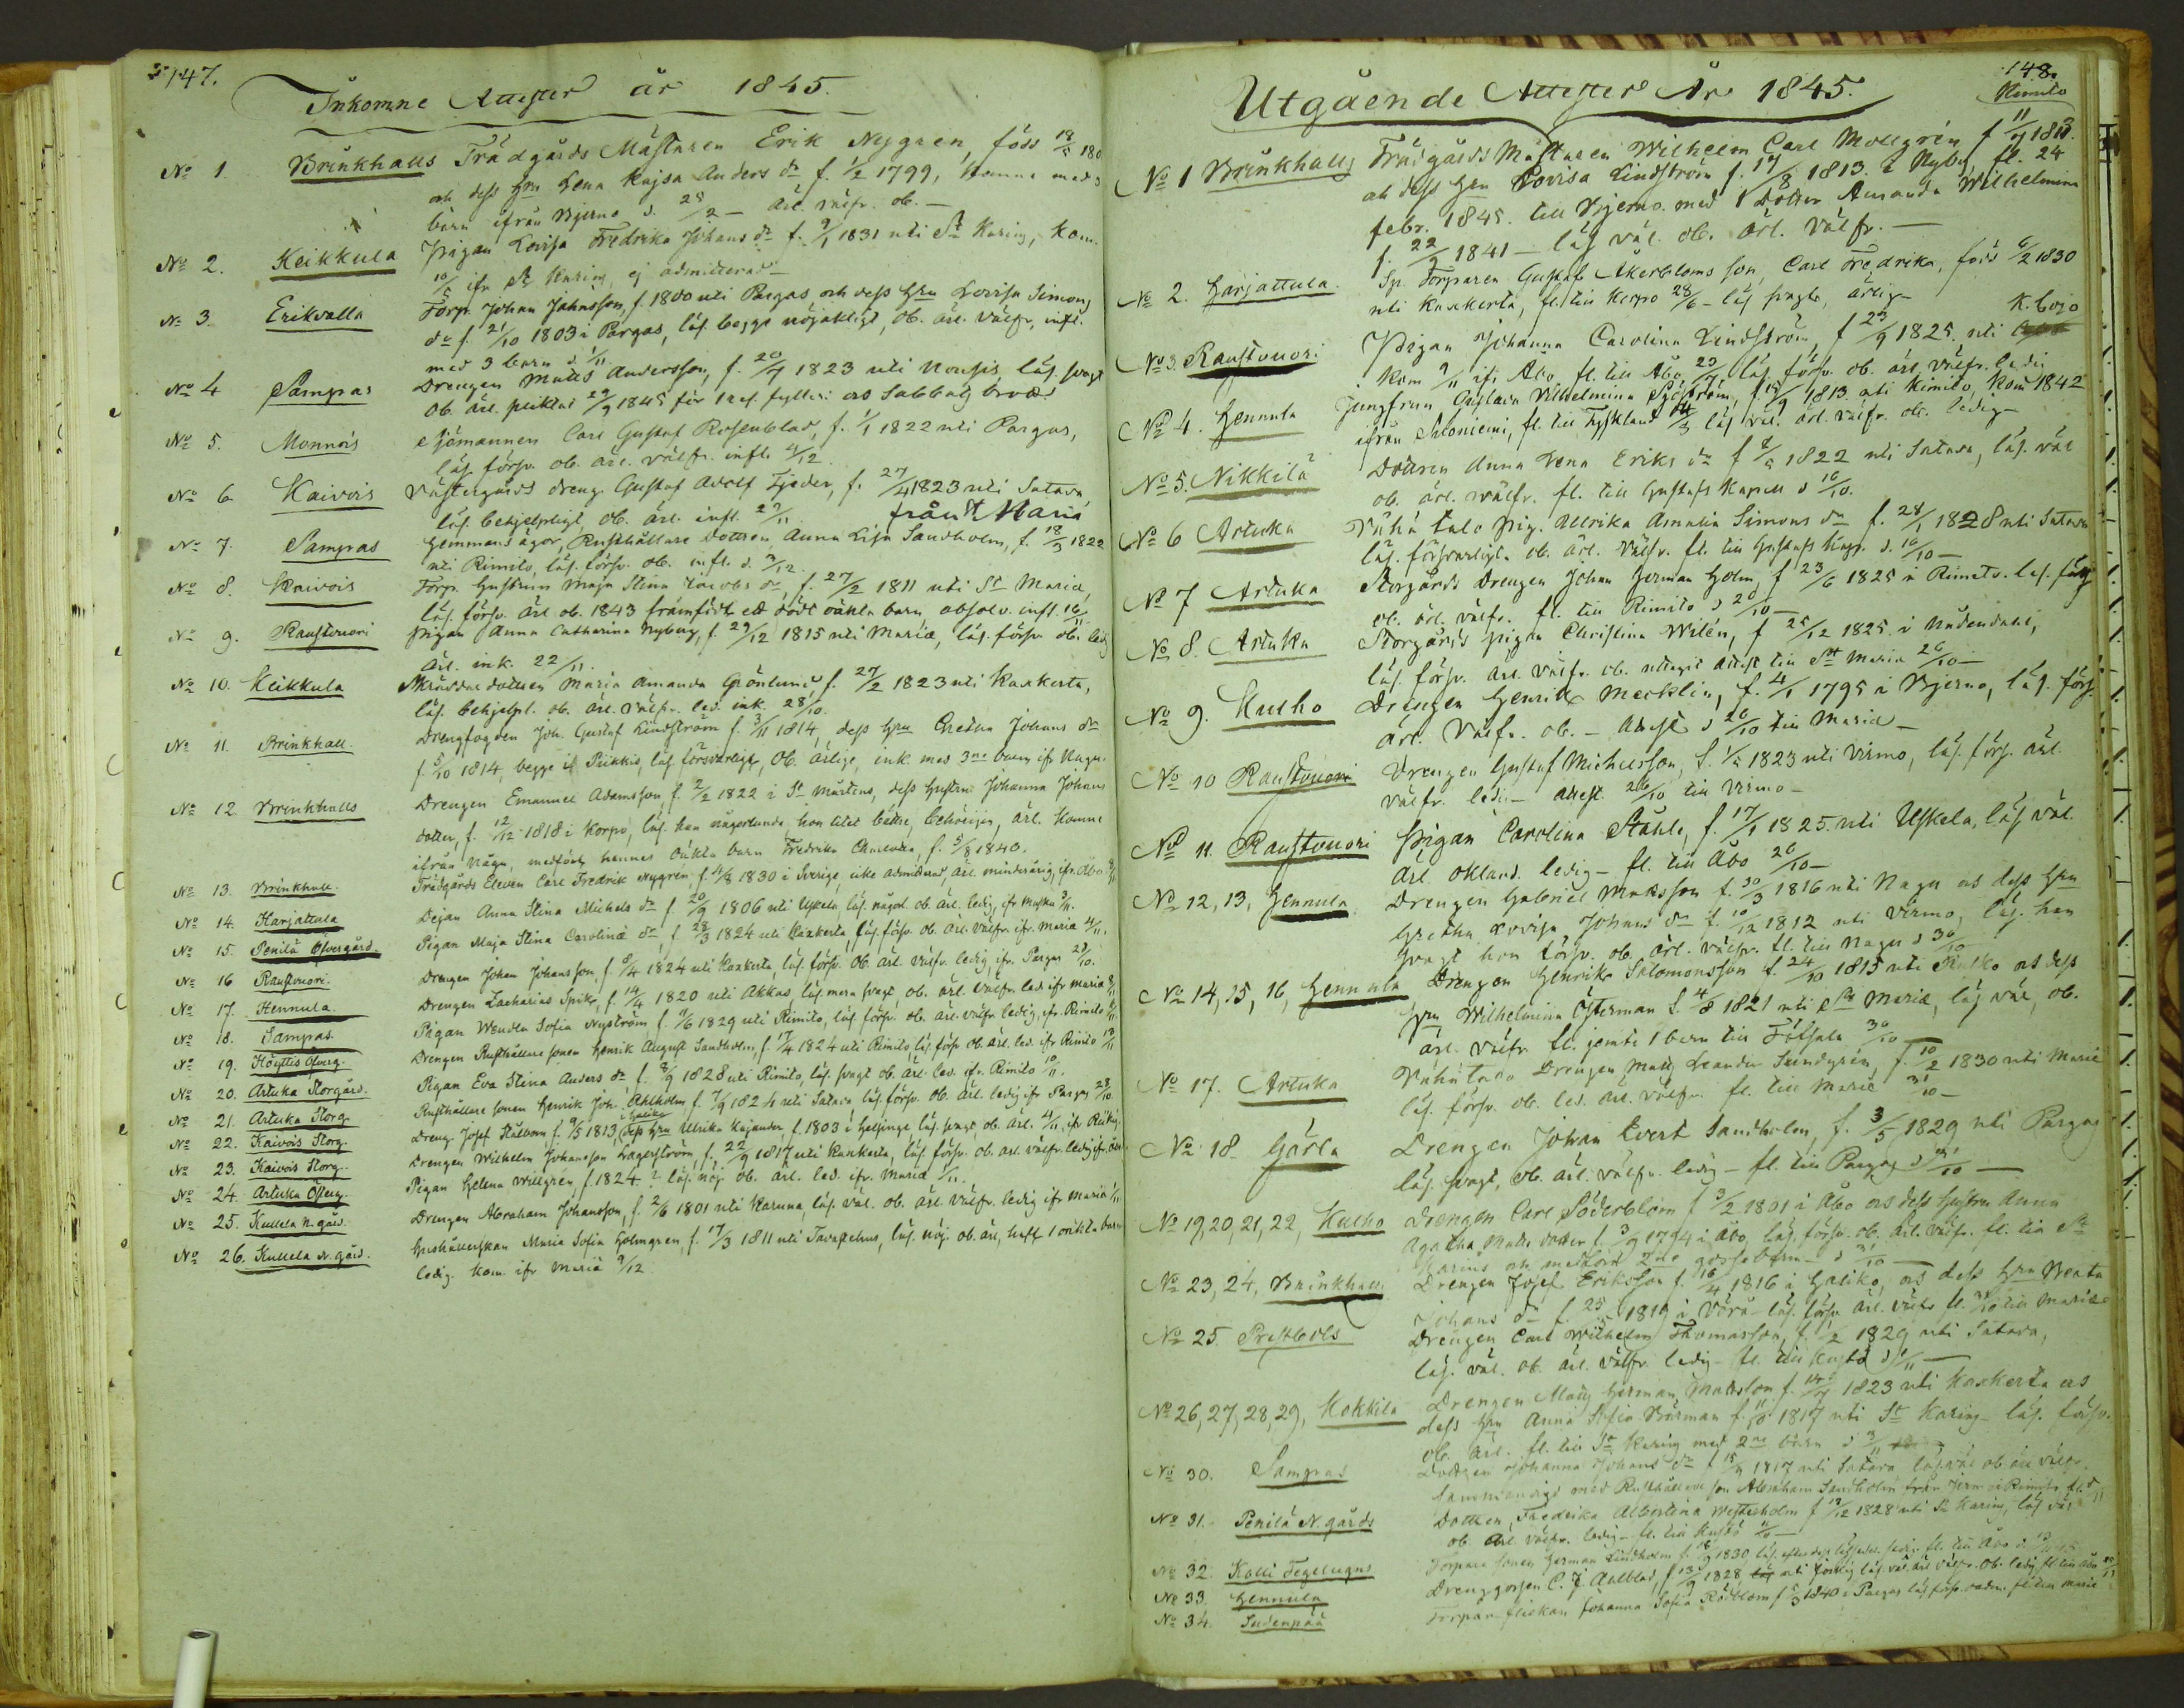 147.
Inkomne Attester år 1845.
No 1. Brinkhalls Trädgårds Mästaren Erik Nygren, född 180
och dess Hu Lena Kajsa Anders dr f. 1/2 1799, komne med 3
barn ifrån Bjerno d. 25/2 - ärl. välfr. ob. -
No 2. Keikkula Pigan Lovisa Fredrika Johans dr f. 9/1 1831 uti St Karins, kom
10/5 ifr St Karins, ej admitterad -
No 3. Erikvalla Torp. Johan Johansson, f. 1800 uti Pargas, och dess Hru Lovisa Simons
dr f. 21/10 1803 i Pargas, läs. begge nöjaktligt, ob. ärl. välfr. infl.
med 3 barn d. 1/11
No 4 Sampas Drengen Matts Andersson, f. 20/7 1823 uti Nousis, läs. svagt
ob. ärl. pliktat 29/9 1845 för 1a fylleri as Sabbats brott
No 5. Monnois Sjömannen Carl Gustaf Rosenblad, f. 1/1 1822 uti Pargas,
läs. försv. ob. ärl. välfr. infl. 4/12.
No 6 Kaivois Västergårds dreng Gustaf Adolf Fjeder, f. 27/4 1823 uti Satava,
läs. behjelpligt, ob. ärl. infl. 27/11 från St Maria
No 7. Sampas Hemmans ägar, Rusthållare dottren Anna Lisa Sandholm, f. 18/3 1822
uti Rimito, läs. försv. ob. infl. d. 3/12.
No 8. Kaivois Torp. Hustrun Maja Stina Jacobs dr, f. 27/2 1811 uti St Maria,
läs. försv. ärl. ob. 1843 framfödt ett dödt oäkta barn absolv. infl. 16/11
No 9. Raustvuori Pigan Anna Catharina Nyberg, f. 29/12 1815 uti Mariæ, läs. försv. ob. ledig
ärl. ink. 22/11.
No 10. Keikkula Skräddar dottren Maria Amanda Grönlund, f. 27/2 1823 uti Kakskerta,
läs. behjelpl. ob. ärl. välfr. led. ink. 28/10.
No 11. Brinkhall. Drengfogden Joh. Gustaf Lindström f. 3/11 1814, dess Hru Greta Johans dr
f. 5/10 1814, begge if Pikkis, läs. försvarligt, ob. ärlige, ink. med 3ne barn ifr Nagu.
No 12 Brinkhalls Drengen Emanuel Adamsson f. 2/2 1822 i St Mårtens, dess Hustru Johanna Johans
dotter, f. 12/12 1818 i Korpo, läs. han någorlunda, hon litet bättre, behörigen, ärl. komne
ifrån Nagu, medförs hennes Oäkta barn Fredrika f. 5/8 1840.
No 13. Brinkhall. Trädgårds Eleven Carl Fredrik Nygren, f. 4/8 1830 i Sverige, icke admitterad, ärl. minderårig, ifr. Åbo
No 14. Harjattula Degan Anna Stina Michels dr f. 20/9 1806 uti Uskela, läs. något ob. ärl. ledig, ifr Masku 3/11.
No 15. Penilä Öfvergård. Pigan Maja Stina Carolina dr f. 28/3 1824 uti Kakskerta, läs. försv. ob. ärl. välfr. ifr. Maria 4/11.
No 16 Raustvuori. Drengen Johan Johansson, f. 5/4 1824 uti Kakskerta, läs. försv. ob. ärl. välfr. ledig, ifr. Pargas 27/10.
No 17. Hennula. Drengen Zacharias Spik, f. 14/4 1820 uti Akkas, läs. mera svagt, ob. ärl. välfr. led. ifr Maria
No 18. Sampas. Pigan Wendla Sofia Nyström, f. 11/6 1829 uti Rimito, läs. försv. ob. ärl. välfr. ledig, ifr. Rimito
No 19. Höyttis Öfverg. Drengen Rusthållare sonen Henrik August Sandholm, f. 17/4 1824 uti Rimito läs. försv. ob. ärl. led. ifr Rimito
No 20. Artuka Storgård. Pigan Eva Stina Anders dr f. 8/9 1828 uti Rimito, läs. svagt ob. ärl. led. ifr. Rimito 10/11.
No 21. Artuka Storg. Rusthållare sonen Henrik Joh. Ahlholm, f. 7/9 1824 uti Satava läs. försv. ob. ärl. ledig ifr Pargas 28/10.
No 22. Kaivois Storg. Dreng Josef Stålbom f. 9/5 1813, i Haliko, dess Hru Ulrika Kajander, f. 1803 i Helsinge läs. svagt, ob. ärl. 4/11, ifr
No 23. Kaivois Storg. Drengen Wilhelm Johansson Lagerström, f. 22/9 1817 uti Kakskerta, läs. försv. ob. ärl. välfr. ledig ifr. Åbo
No 24. Artuka Österg. Pigan Helena Willgren, f. 1824. ? läs. nöj. ob. ärl. led. ifr. Maria 1/11.
No 25. Kullela N. gård. Drengen Abraham Johansson, f. 2/6 1801 uti Karuna, läs. väl. ob. ärl. välfr. ledig ifr Maria 1/11.
No 26. Kullela N. gård. Hushållerskan Maria Sofia Holmgren, f. 17/3 1811 uti Tavastehus, läs. nöj. ob. är, haft 1 oäkta barn
ledig. Kom. ifr Maria 9/12.
148.
Utgående Attester År 1845.
Rimito
No 1 Brinkhalls Trädgårds Mästaren Wilhelm Carl Mollgrén f 11/7 1813.
ok dess Hru Lovisa Lindström f. 17/8 1813. i Nyby, fl. 24
febr. 1845. till Bjerno. med 1 Dotter Amanda Wilhelmina
f. 22/9 1841 - läs väl. ob. ärl. välfr. -
No 2. Harjattula. Sp. Torparen Gustaf Åkerbloms son, Carl Fredrik, född 6/2 1830
uti Kakskerta, fl. till Korpo 28/6 - läs svagt, ärlig -
No 3. Raustvuori Pigan Johanna Carolina Lindström, f 23/9 1825. uti K. Lojo
kom 9/11 ifr Åbo fl. till Åbo, läs. försv. ob. ärl. välfr. ledig
No 4. Hennula Jungfrun Gustava Wilhelmina Sjöström, f. 15/9 1813. uti Kimito, kom 1842
ifrån, fl. till Tyskland läs väl. ärl. välfr. ob. ledig -
No 5. Nikkilä Dottren Anna Lena Eriks dr f 7/5 1822 uti Satava, läs. väl
ob. ärl. välfr. fl. till Gustafs Kapell d 16/10.
No 6 Artuka Vähä talo pig. Ulrika Amalia Simons dr f. 28/1 1828 uti Satava
läs. försvarligt. ob. ärl. välfr. fl. till Gustafs Kap. d. 16/10 -
No 7 Artuka Storgårds Drengen Johan Herman Holm, f 23/6 1825 i Rimito. läs. försv
ob. ärl. välfr. fl. till Rimito d 20/10 -
No 8. Artuka Storgårds pigan Christina Wilén, f 25/12 1825. i Nådendahl,
läs. försv. ärl. välfr. ob. uttagit attest till St Maria 26/10 -
No 9. Kulho Drengen Henrik Mecklin, f. 4/1 1795 i Bjerno, läs. försv.
ärl. Välfr. ob. - attest d 26/10 till Maria -
No 10 Raustvuori Drengen Gustaf Michelsson, f. 1/5 1823 uti Virmo, läs. förs. ärl.
välfr. ledig - attest. 26/10 till Virmo -
No 11. Raustvuori Pigan Carolina Ståhle, f. 17/1 1825. uti Uskela, läs väl.
ärl. okland. ledig - fl. till Åbo 26/10 -
No 12, 13, Hennula Drengen Gabriel Matsson f. 30/3 1816 uti Nagu as dess Hru
Gretha Lovisa Johans dr f. 10/12 1812 uti Virmo, läs. han
svagt hon försv. ob. ärl. välfr. fl. till Nagu d 30/10
No 14, 15, 16, Hennula Drengen Henrik Salomonsson f. 24/10 1815 uti as dess
Hru Wilhelmina Österman f. 4/8 1821 uti St Mariæ, läs väl, ob.
ärl. välfr fl. jemte 1 barn till 30/10
No 17. Artuka Vähä talo Drengen Matts Leander Sundgrén, f. 10/2 1830 uti Mariæ
läs. försv. ob. led. ärl. välfr. fl. till Mariæ 31/10 -
No 18 Gärla Drengen Johan Evert Sandholm, f. 3/5 1829 uti Pargas
läs. svagt, ob. ärl. välfr. ledig - fl. till Pargas d 31/10 -
No 19, 20, 21, 22, Kulho Drengen Carl Söderblom f 3/2 1801 i Åbo as dess hustru Anna
Agatha Matts dotter f. 3/9 1794 i Åbo, läs. försv. ob. ärl. välfr. fl. till St
Karins och medförd 2ne gossebarn - d 31/10 -
No 23, 24, Brinkhall Drengen Josef Eriksson f. 16/4 1816 i Haliko, as dess Hru Beata
Johans dr f. 25/ 1819 i Vörå - läs. försv. ärl. välfr fl. 31/10 till Mariæ
No 25 Prestbols Drengen Carl Wilhelm Thomasson, f. 1/2 1829 uti Satava,
läs. väl. ob. ärl. välfr ledig - fl. till Kustö d 1/11 -
No 26, 27, 28, 29, Kokkila Drengen Matts Herman Mattsson f. 14/7 1823 uti Kakskerta as
dess Hru Anna Sofia Bärman f. 11/10 1817 uti St Karins - läs. försv.
ob. ärl. fl. till St Karins med 2ne barn d 3/11
No 30. Sampas Dottren Johanna Johans dr f 15/9 1817 uti Satava läs. väl ob. ärl välfr.
sammanvigd med Rusthållare son Abraham Sandholm från i Rimito fl.
No 31. Penilä N. gårds Dottren, Fredrika Albertina Westerholm f 13/12 1828 uti St Karins, läs väl
ob. ärl välfr. ledig - fl. till Kustö -
No 32. Kalli Tegelugns Torpare sonen Herman Lindholm f. 18/9 1830, läs. fl. till Åbo d.
No 33. Hennula Drenggossen C. J. Ahlblad, f 13/9 1828 uti läs. väl ärl. välfr. ob. ledig fl. till Åbo 24/11
No 34. Sudenpää Torpar-flickan Johanna Sofia Rödblom f 5/3 1840 i Pargas läs försv. fl. till Mariæ